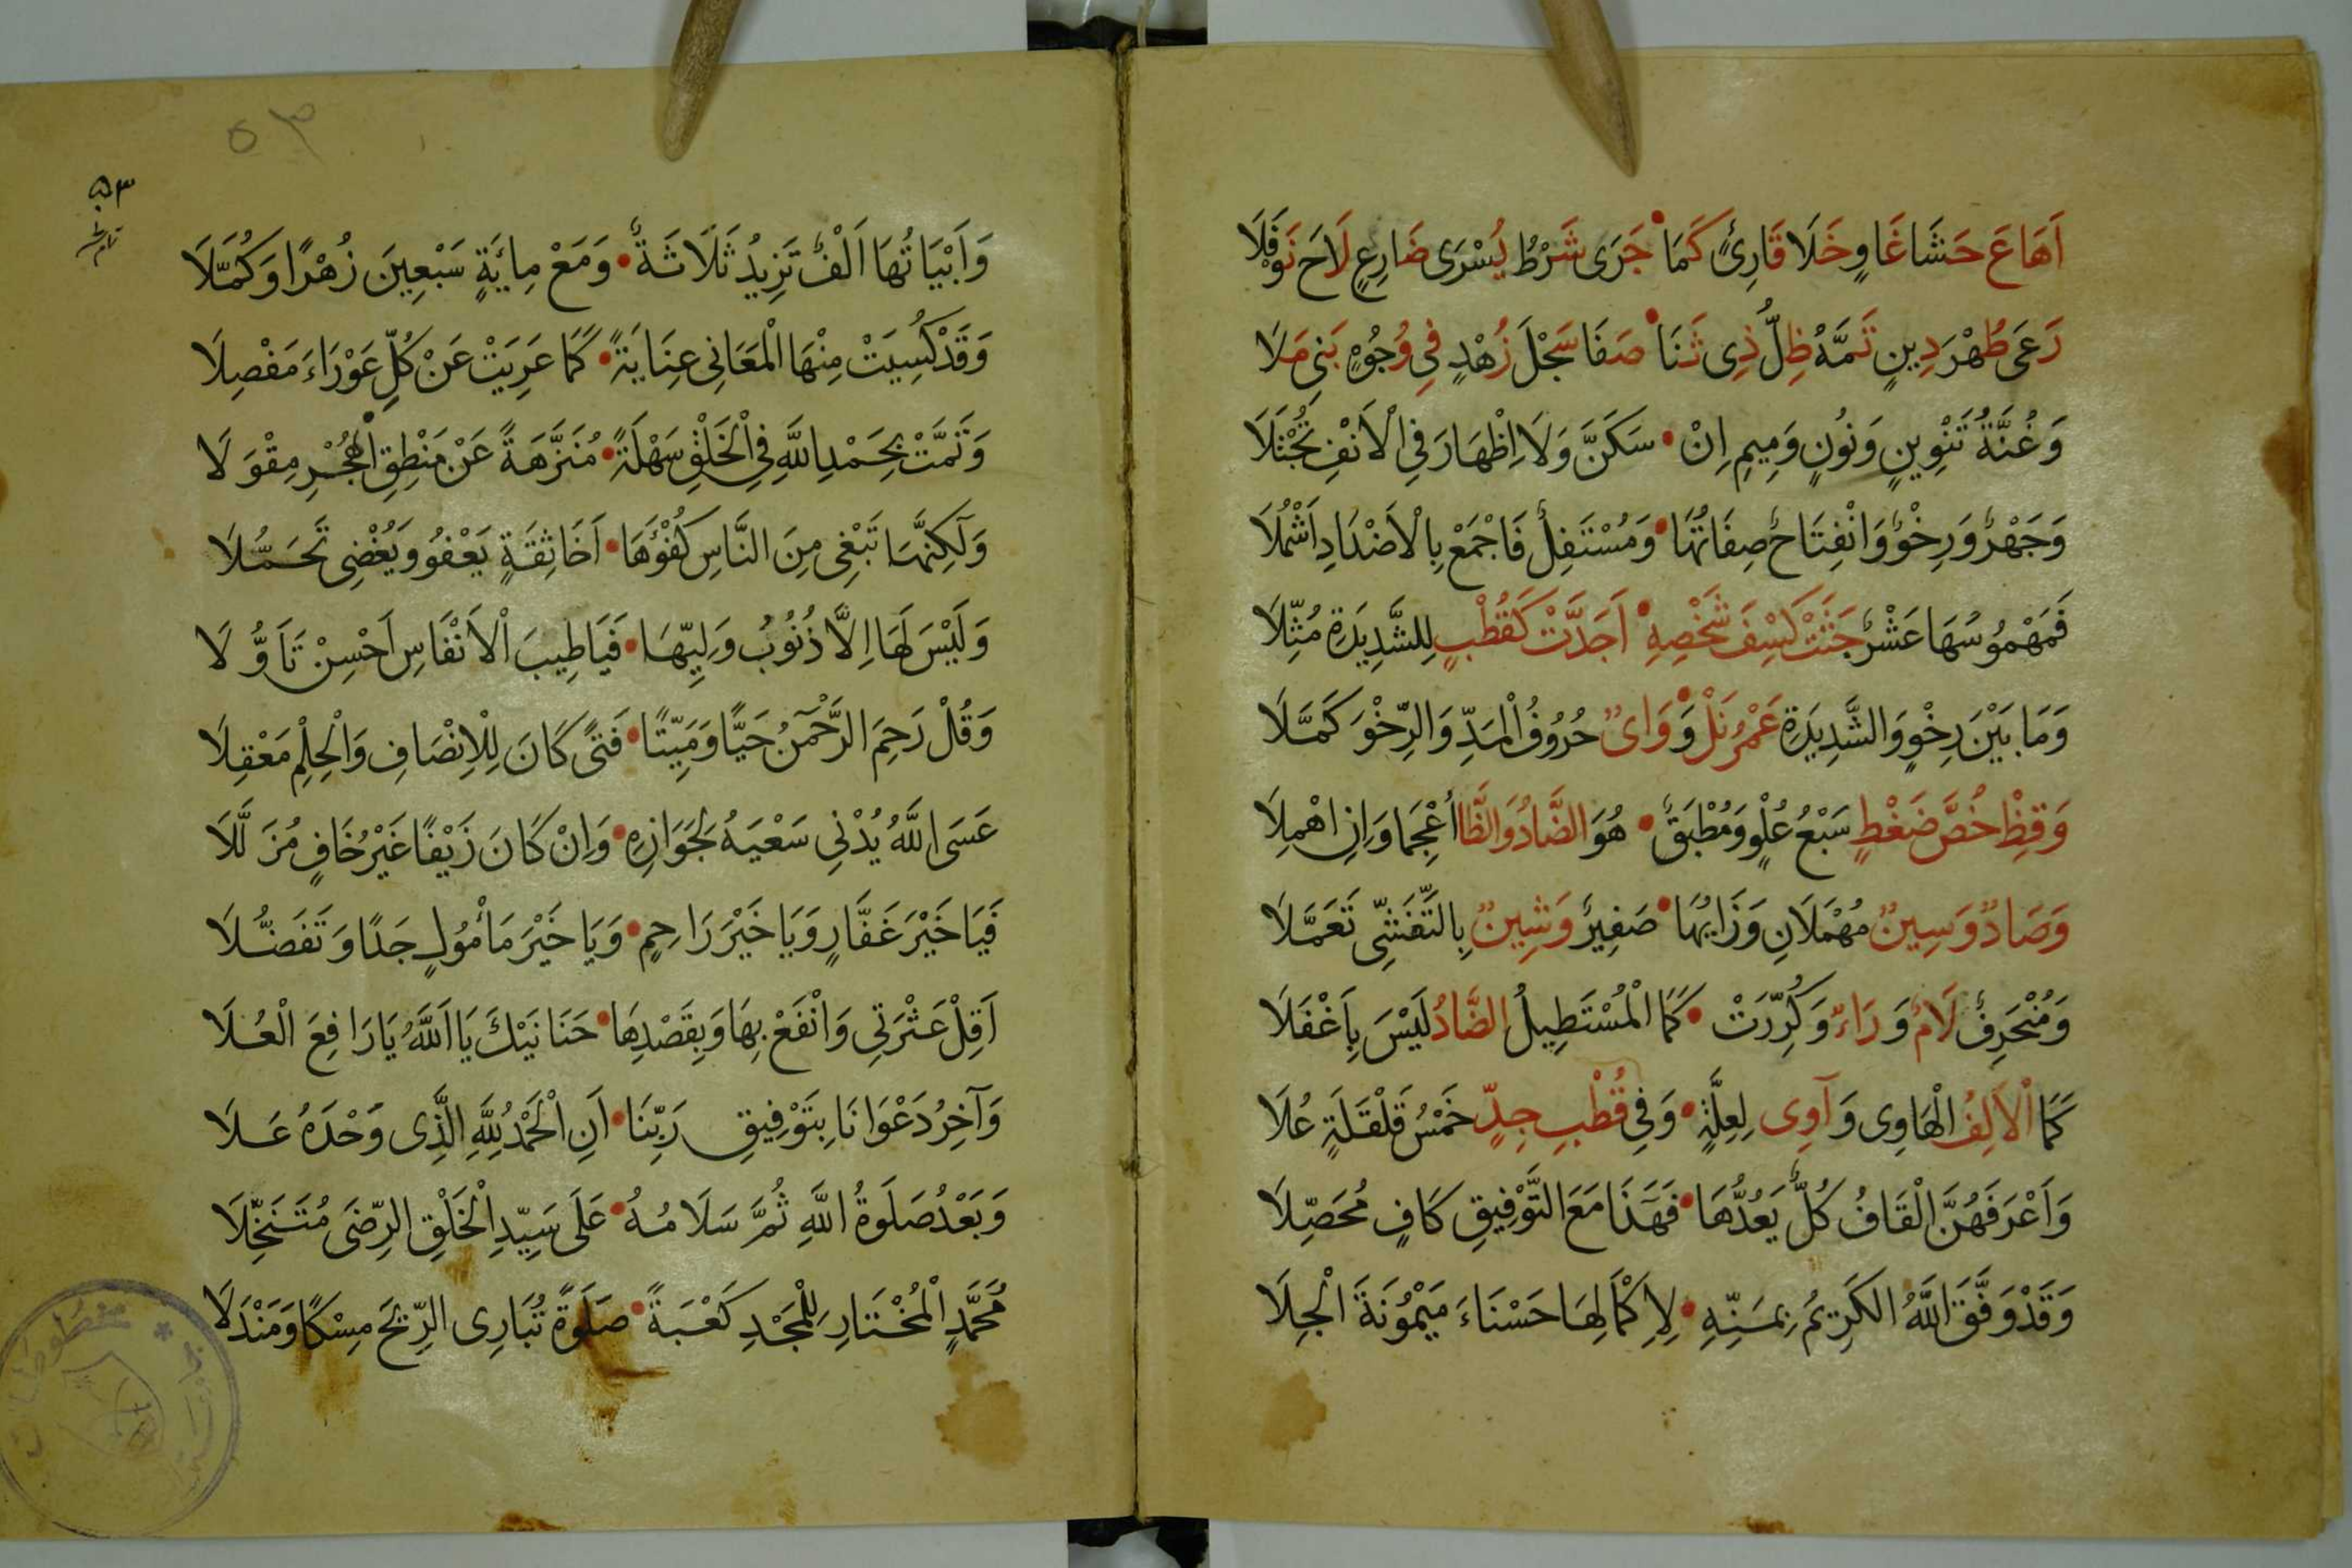 اَهَاعَ حَشَا غَاوٍ خَلَا قَارِئٌ كَمَا • جَرَى شَرْطُ يُسْرَى ضَارِعٍ لَاحَ نَوْفَلَا
رَعَى طُهْرَ دِينٍ تَمَّهُ ظِلُّ ذِى ثَنَا • صَفَا سَجْلَ زُهْدٍ فِى وُجُوهِ بَنِى مَلَا
وَغُنَّةُ تَنْوِينٍ وَنُونٍ وَمِيمِ اِنْ • سَكَنَّ وَلَا اِظْهَارَ فِى الْاَنْفِ تُجْتَلَا
وَجَهْرٌ وَرِخْوٌ وَانْفِتَاحٌ صِفَاتُهَا • وَمُسْتَفِلٌ فَاجْمَعْ بِالْاَضْدَادِ اَشْمُلَا
فَمَهْمُوسُهَا عَشْرٌ حَثَتْ كِسْفَ شَخْصِهِ • اَجَدَّتْ كَقُطْبٍ لِلشَّدِيدَةِ مُثِّلَا
وَمَا بَيْنَ رِخْوٍ وَالشَّدِيدَةِ عَمْرُنَلْ • وَوَاىٌ حُرُوفُ الْمَدِّ وَالرِّخْوَ كَمَّلَا
وَقِظْ خُصَّ ضَغْطٍ سَبْعُ عُلْوٍ وَمُطْبَقٌ • هُوَ الضَّادُ وَالظَّا اُعْجِمَا وَاِنِ اهْمِلَا
وَصَادٌ وَسِينٌ مُهْمَلَانِ وَزَايُهَا • صَفِيرٌ وَشِينٌ بِالتَّفَشِّى تَعَمَّلَا
وَمُنْحَرِفٌ لَامٌ وَرَاءٌ وَكُرِّرَتْ • كَمَا الْمُسْتَطِيلُ الضَّادُ لَيْسَ بِاَغْفَلَا
كَمَا الْاَلِفُ الْهَاوِى وَآوِى لِعِلَّةٍ • وَفِى قُطْبِ جِدٍّ خَمْسُ قَلْقَلَةٍ عُلَا
وَاَعْرَفُهُنَّ الْقَافُ كُلٌّ يَعُدُّهَا • فَهَذَا مَعَ التَّوْفِيقِ كَافٍ مُحَصِّلَا
وَقَدْ وَفَّقَ اللَّهُ الكَرِيمُ بِمَنِّهِ • لِاِكْمَالِهَا حَسْنَاءَ مَيْمُونَةَ الْجِلَا
٥٣
٥٣
وَاَبْيَاتُهَا اَلْفٌ تَزِيدُ ثَلَاثَةً • وَمَعْ مِائَةٍ سَبْعِينَ زُهْرًا وَكُمَّلَا
وَقَدْ كُسِيَتْ مِنْهَا الْمَعَانِى عِنَايَةً • كَمَا عَرِيَتْ عَنْ كُلِّ عَوْرَاءَ مَفْصِلَا
وَتَمَّتْ بِحَمْدِ اللَّهِ فِى الْخَلْقِ سَهْلَةً • مُنَزَّهَةً عَنْ مَنْطِقِ الْهُجْرِ مِقْوَلَا
وَلَكِنَّهَا تَبْغِى مِنَ النَّاسِ كُفْؤَهَا • اَخَا ثِقَةٍ يَعْفُو وَيُغْضِى تَحَمُّلَا
وَلَيْسَ لَهَا اِلَّا ذُنُوبُ وَلِيِّهَا • فَيَا طِيبَ الْاَنْفَاسِ اَحْسِنْ تَاَوُّلَا
وَقُلْ رَحِمَ الرَّحْمَنُ حَيًّا وَمَيِّتًا • فَتًى كَانَ لِلْاِنْصَافِ وَالْحِلْمِ مَعْقِلَا
عَسَى اللَّهُ يُدْنِى سَعْيَهُ لِجَوَازِهِ • وَاِنْ كَانَ زَيْفًا غَيْرَ خَافٍ مُزَلَّلَا
فَيَا خَيْرَ غَفَّارٍ وَيَا خَيْرَ رَاحِمٍ • وَيَا خَيْرَ مَأْمُولٍ جَدًا وَتَفَضُّلَا
اَقِلْ عَثْرَتِى وَانْفَعْ بِهَا وَبِقَصْدِهَا • حَنَانَيْكَ يَا اَللَّهُ يَا رَافِعَ الْعُلَا
وَآخِرُ دَعْوَانَا بِتَوْفِيقِ رَبِّنَا • اَنِ الْحَمْدُ لِلَّهِ الَّذِى وَحْدَهُ عَلَا
وَبَعْدُ صَلَوةُ اللَّهِ ثُمَّ سَلَامُهُ • عَلَى سَيِّدِ الْخَلْقِ الرِّضَى مُتَنَخِّلَا
مُحَمَّدٍ الْمُخْتَارِ لِلْمَجْدِ كَعْبَةً • صَلَوةً تُبَارِى الرِّيحَ مِسْكًا وَمَنْدَلَا